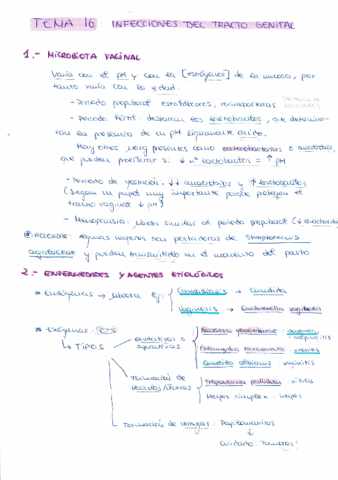 TEMA 16: INFECCIONES DEL TRACTO GENITAL
1.- MICROBIOTA VAGINAL
Varía con el pH y con la [estrógenos] de la mucosa, por
tanto varía con la edad.
- Periodo prepuberal: estafilococos, corinebacterias
- Periodo fértil: destacan los lactobacilos, que determinan
la presencia de un pH ligeramente ácido.
Hay otros presentes como enterobacterias o anaerobios
que pueden proliferar si ↓ nº lactobacilos = ↑ pH
- Periodo de gestación: ↓↓ anaerobios y ↑ lactobacilos
(juegan un papel muy importante porque protegen el
tracto vaginal ↓ pH)
- Menopausia: similar al periodo prepuberal (↓
RECORDAR: algunas mujeres son portadoras de Streptococcus
agalactiae y pueden transmitirlo en el momento del parto
2.- ENFERMEDADES Y AGENTES ETIOLÓGICOS
* Endógenas → Ej: Candidiasis → Candida
Vaginosis → Gardnerella vaginalis
* Exógenas: ETS
↳ TIPOS
Neisseria gonorrhoeae:
Chlamydia trachomatis: uretritis
Candida albicans: vaginitis
Formación de vesículas/úlceras
Treponema pallidum: sífilis
Herpes simplex: herpes
Formación de verrugas: Papilomavirus
Cuidado Tumores!